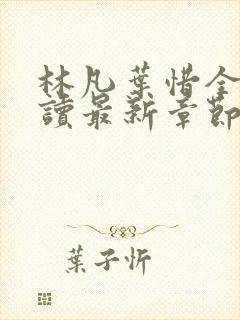 林凡葉惜全
讀最新章節
葉子忻